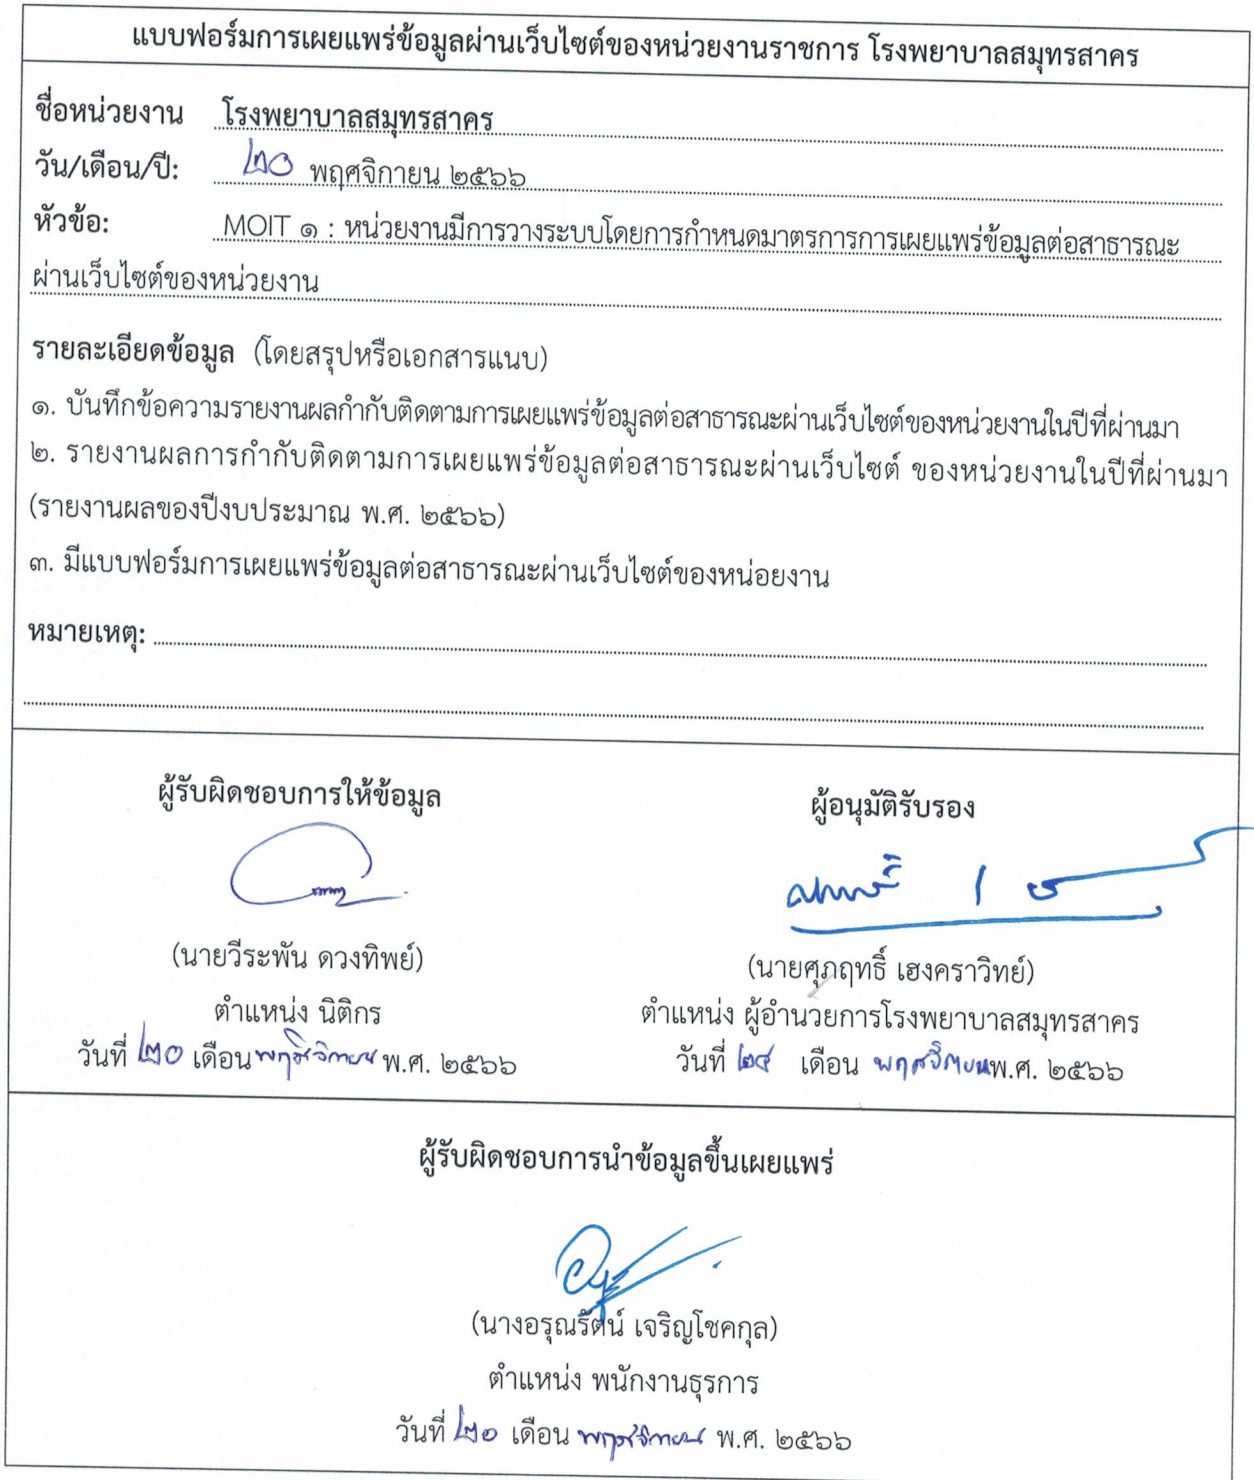 แบบฟอร์มการเผยแพร่ข้อมูลผ่านเว็บไซต์ของหน่วยงานราชการ โรงพยาบาลสมุทรสาคร
ชื่อหน่วยงาน โรงพยาบาลสมุทรสาคร
วัน/เดือน/ปี: ๒๐ พฤศจิกายน ๒๕๖๖
หัวข้อ: MOIT ๑ : หน่วยงานมีการวางระบบโดยการกำหนดมาตรการการเผยแพร่ข้อมูลต่อสาธารณะ
ผ่านเว็บไซต์ของหน่วยงาน
รายละเอียดข้อมูล (โดยสรุปหรือเอกสารแนบ)
๑. บันทึกข้อความรายงานผลกำกับติดตามการเผยแพร่ข้อมูลต่อสาธารณะผ่านเว็บไซต์ของหน่วยงานในปีที่ผ่านมา
๒. รายงานผลการกำกับติดตามการเผยแพร่ข้อมูลต่อสาธารณะผ่านเว็บไซต์ ของหน่วยงานในปีที่ผ่านมา
(รายงานผลของปีงบประมาณ พ.ศ. ๒๕๖๖)
๓. มีแบบฟอร์มการเผยแพร่ข้อมูลต่อสาธารณะผ่านเว็บไซต์ของหน่อยงาน
หมายเหตุ:
ผู้รับผิดชอบการให้ข้อมูล
(นายวีระพัน ดวงทิพย์)
ตำแหน่ง นิติกร
วันที่ ๒๐ เดือน พฤศจิกายน พ.ศ. ๒๕๖๖
ผู้อนุมัติรับรอง
(นายศุภฤทธิ์ เฮงคราวิทย์)
ตำแหน่ง ผู้อำนวยการโรงพยาบาลสมุทรสาคร
วันที่ ๒๔ เดือน พฤศจิกายน พ.ศ. ๒๕๖๖
ผู้รับผิดชอบการนำข้อมูลขึ้นเผยแพร่
(นางอรุณรัตน์ เจริญโชคกุล)
ตำแหน่ง พนักงานธุรการ
วันที่ ๒๐ เดือน พฤศจิกายน พ.ศ. ๒๕๖๖